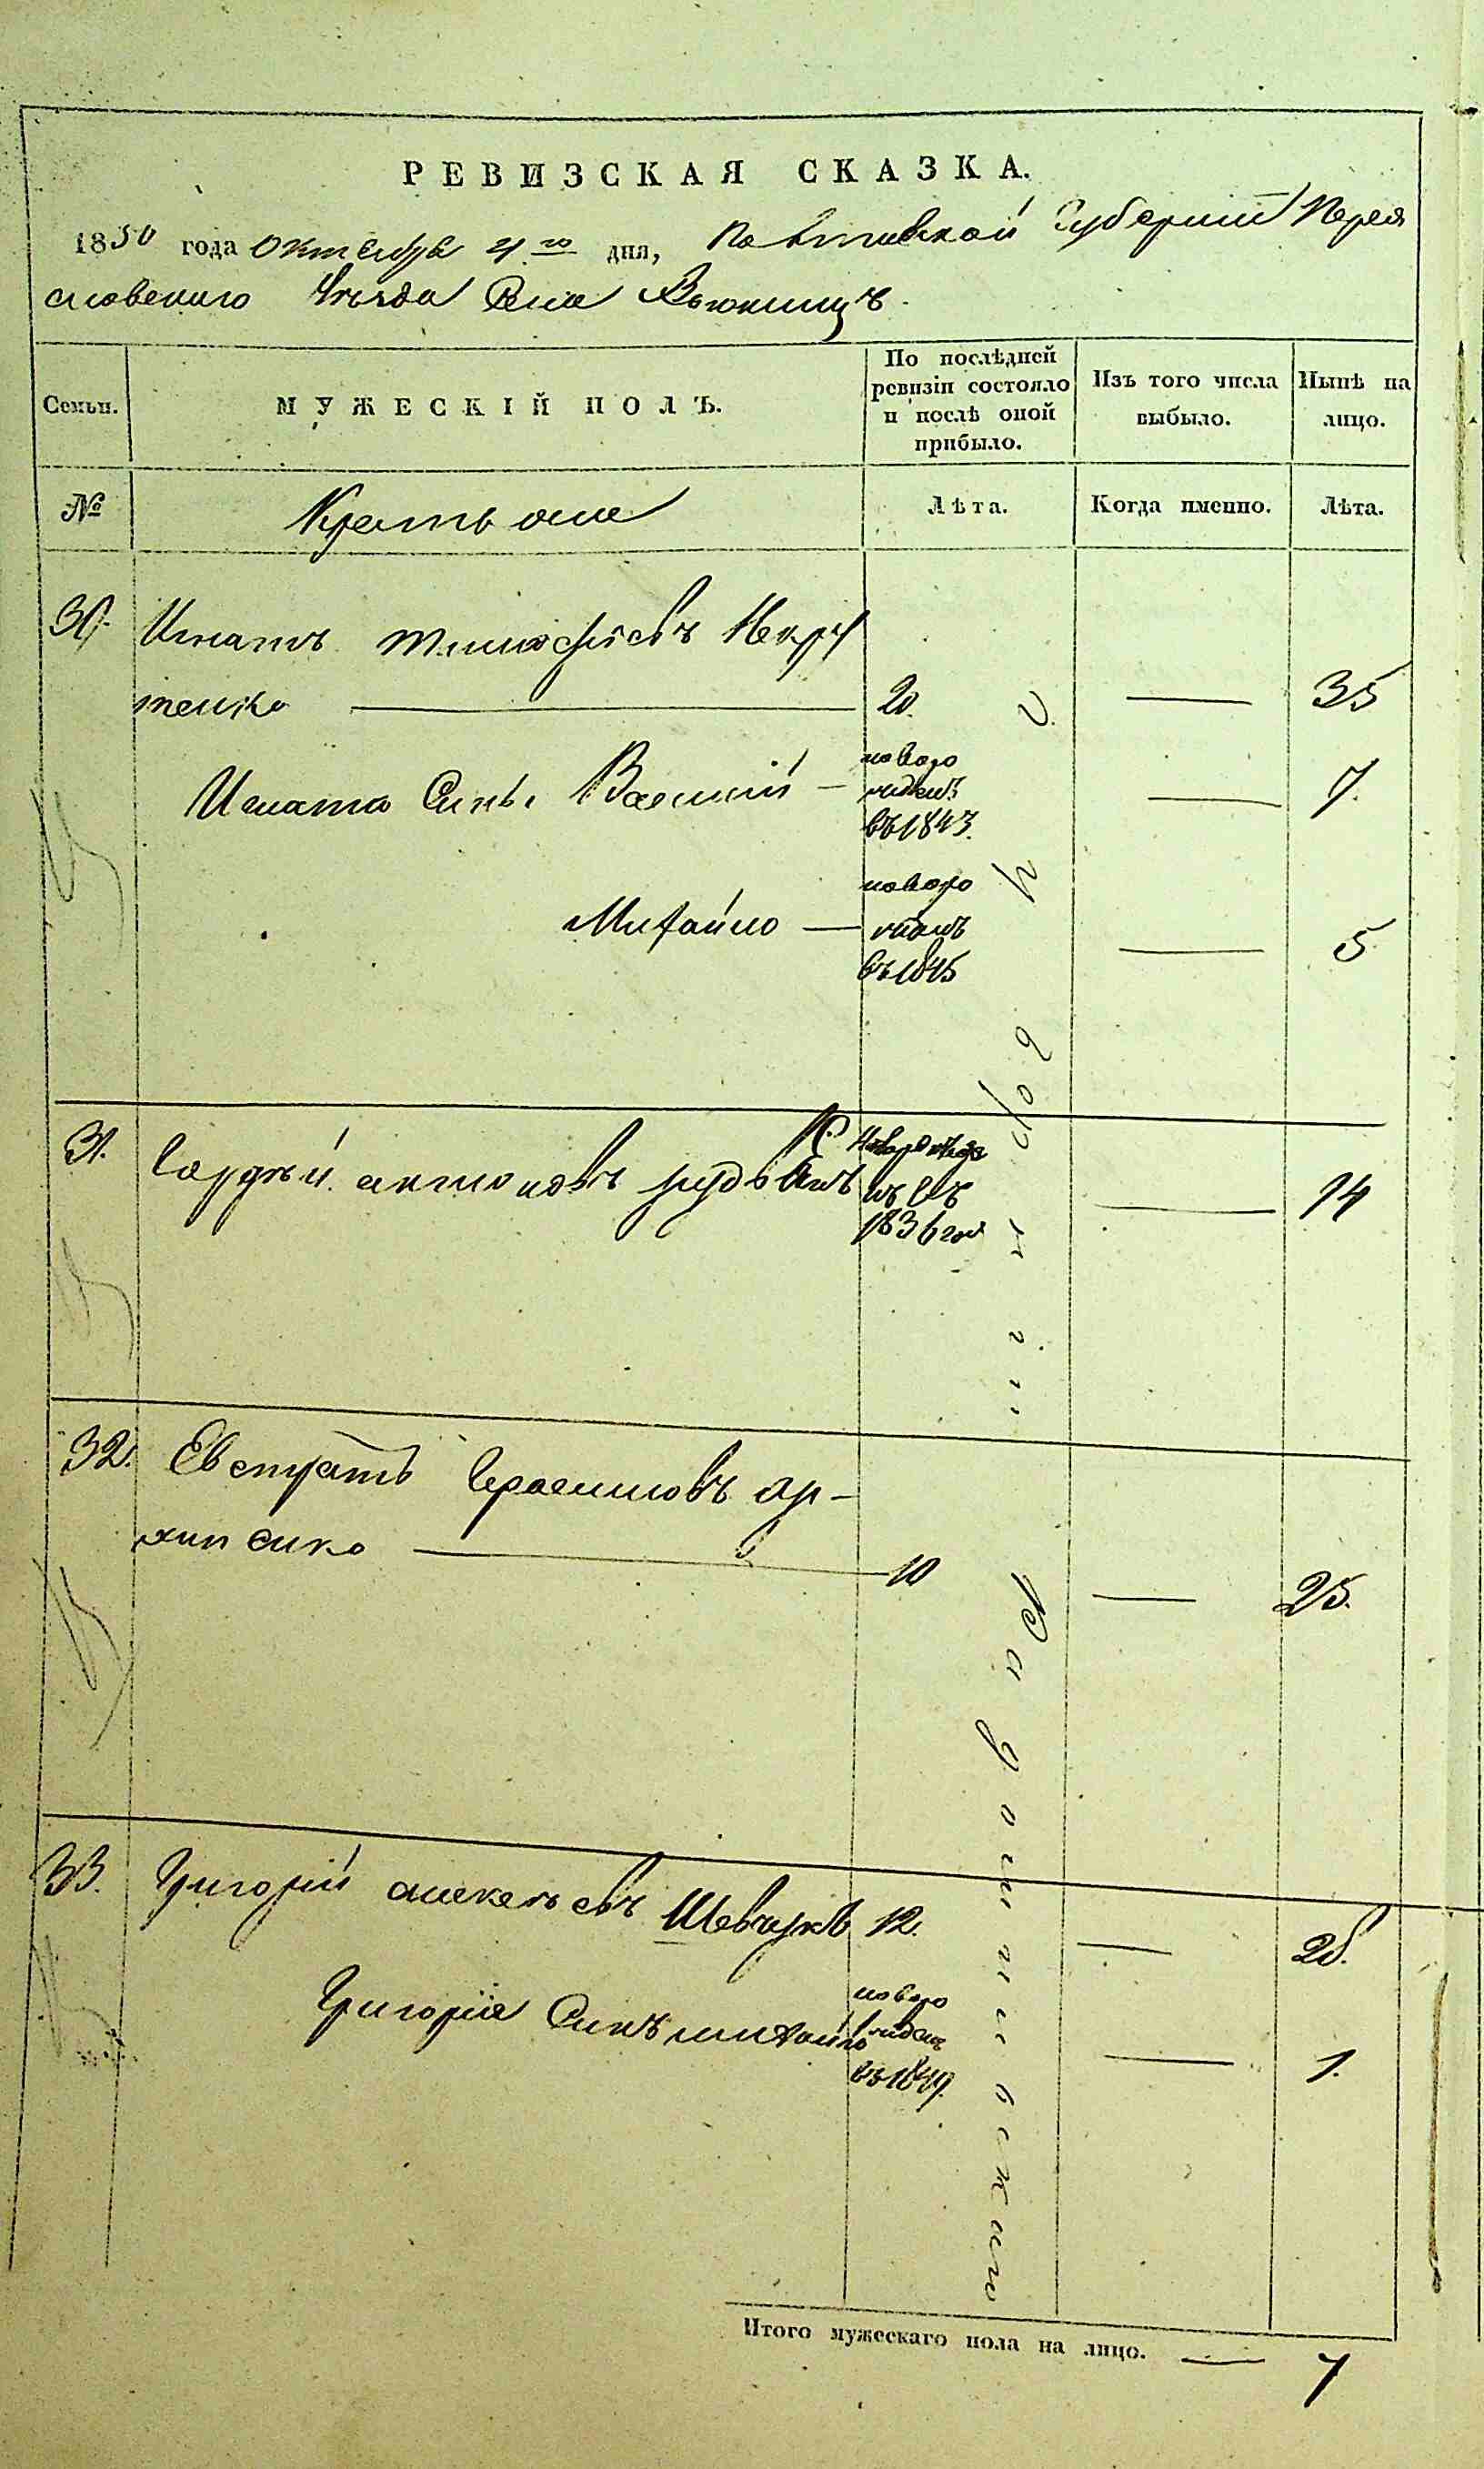 РЕВИЗСКАЯ СКАЗКА.
1850 года Октября 21.го дня, Полтавской Губернiи Перея
словскаго Уѣзда Села Вьюнищъ.
Семьи.
МУЖЕСКІЙ ПОЛЪ.
По послѣдней
ревизіи состояло
и послѣ оной
прибыло.
Изъ того числа
выбыло.
Нынѣ на
лицо.
№
Крестьяне
Лѣта.
Когда именно.
Лѣта.
30. Игнатъ Тимофѣевъ
тенко 20. — 35
Игната Сынъ Василій — новоро
жден.
въ 1843. — 7.
Михайло — новоро
въ 1845 — 5
31. Сергѣй Антоновъ
1836 год — 14
32. Евстратъ Герасимовъ Ар-
хипенко — 10 — 25.
33. Григорій Алексѣевъ Шевчукъ 12. —
Григорія Сынъ Михайло новоро
жден
въ 1849. — 1.
Итого мужескаго пола на лицо. — 7